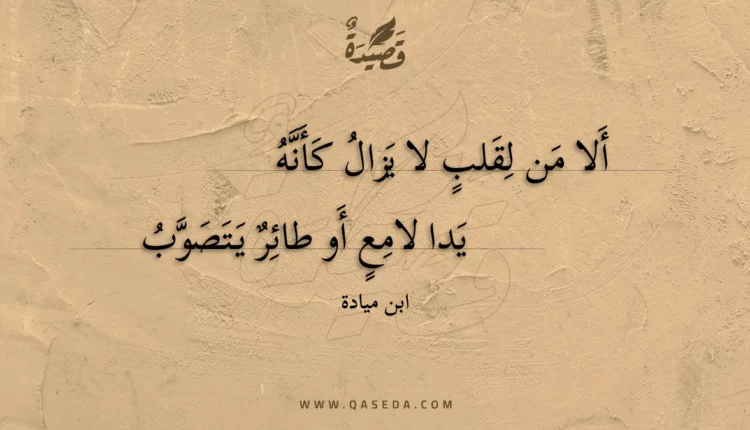 قَصِيدَةٌ
أَلا مَن لِقَلبٍ لا يَزالُ كَأَنَّهُ
يَدا لامِعٍ أَو طائِرٌ يَتَصَوَّبُ
ابن ميادة
WWW.QASEDA.COM